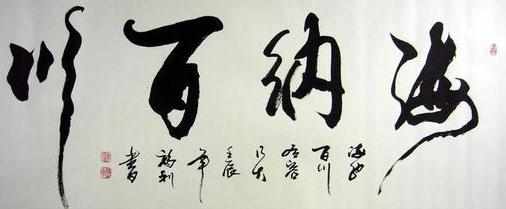 海納百川
海納
百川
有容
乃大
壬辰
年
書